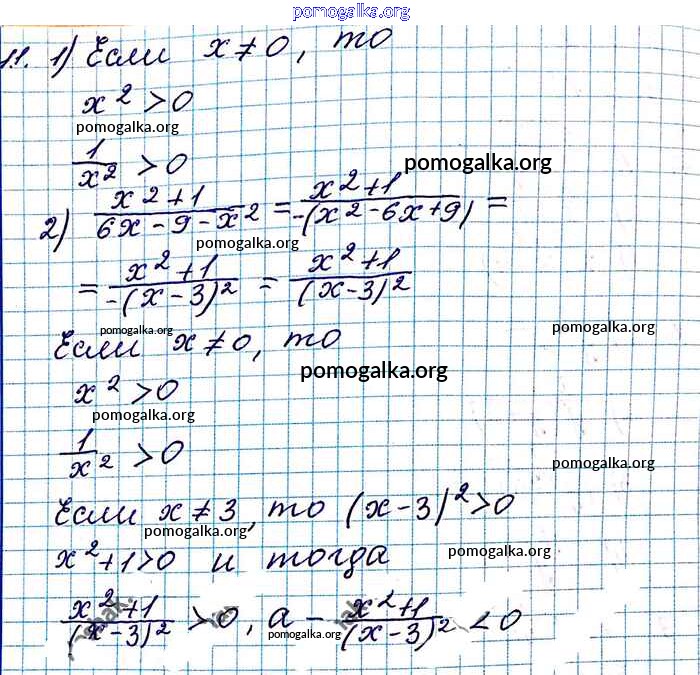 pomogalka.org
11. 1) Если x ≠ 0, то
x² > 0
pomogalka.org
1/x² > 0
pomogalka.org
2) (x²+1)/(6x-9-x²) = (x²+1)/(-(x²-6x+9)) =
pomogalka.org
= (x²+1)/(-(x-3)²) = (x²+1)/((x-3)²)
pomogalka.org
pomogalka.org
Если x ≠ 0, то
pomogalka.org
x² > 0
pomogalka.org
1/x² > 0
pomogalka.org
Если x ≠ 3, то (x-3)² > 0
pomogalka.org
x²+1>0 и тогда
pomogalka.org
(x²+1)/((x-3)²) > 0, а - (x²+1)/((x-3)²) < 0
pomogalka.org